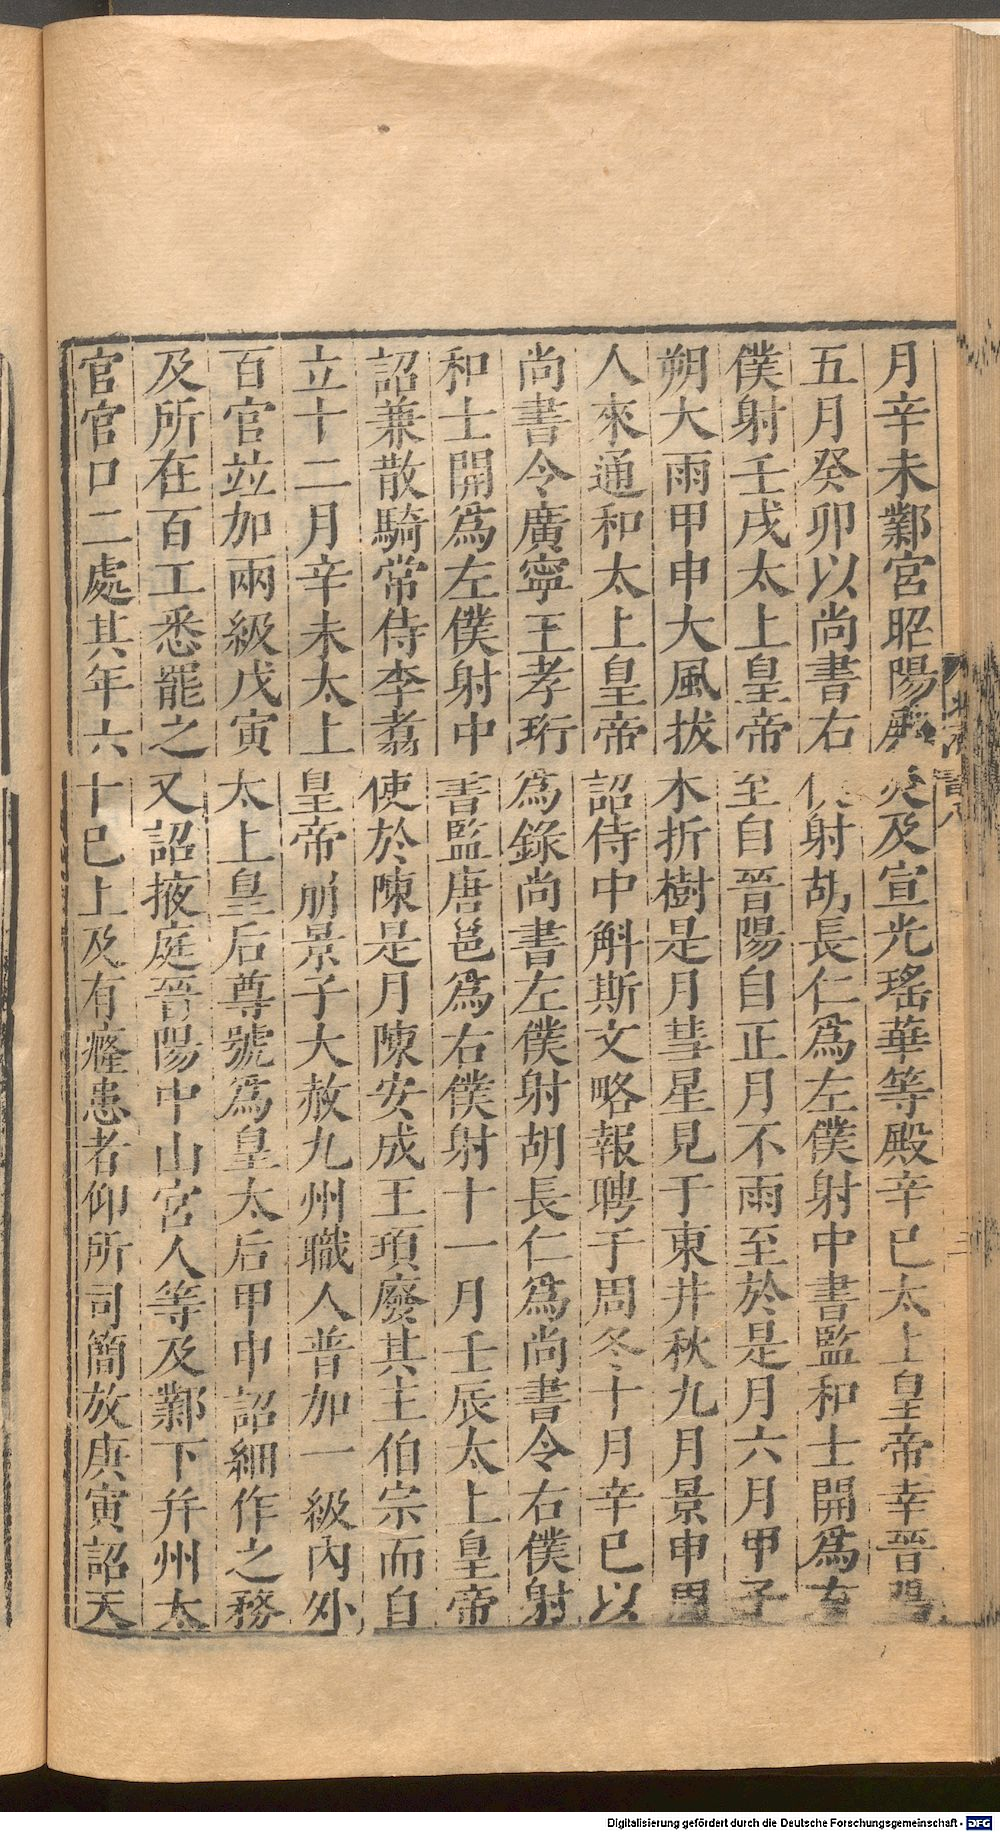 月辛未鄴宮昭陽殿災及宣光瑤華等殿辛巳太上皇帝幸晉陽
五月癸卯以尚書右僕射胡長仁爲左僕射中書監和士開爲右
僕射壬戌太上皇帝至自晉陽自正月不雨至於是月六月甲子
朔大雨甲申大風拔木折樹是月彗星見于東井秋九月景申周
人來通和太上皇帝詔侍中斛斯文略報聘于周冬十月辛巳以
尚書令廣寧王孝珩爲錄尚書左僕射胡長仁爲尚書令右僕射
和士開爲左僕射中書監唐邕爲右僕射十一月壬辰太上皇帝
詔兼散騎常侍李翥使於陳是月陳安成王頊廢其主伯宗而自
立十二月辛未太上皇帝崩景子大赦九州職人普加一級內外
百官竝加兩級戊寅太上皇后尊號爲皇太后甲申詔細作之務
及所在百工悉罷之又詔掖庭晉陽中山宮人等及鄴下幷州太
官官口二處其年六十已上及有癃患者仰所司簡放庚寅詔天
Digitalisierung gefördert durch die Deutsche Forschungsgemeinschaft - DFG